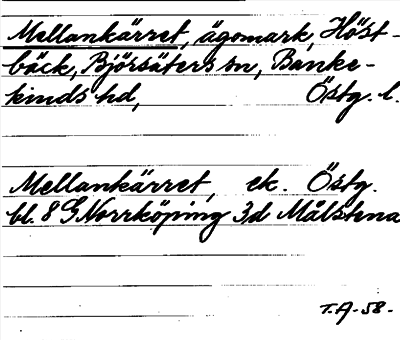 Mellankärret, ägomark, Höst-
bäck, Björsäters sn, Banke-
kinds hd, Östg. l.
Mellankärret, ek. Östg.
bl. 8 G Norrköping 3d Målstena
T.A. 58.